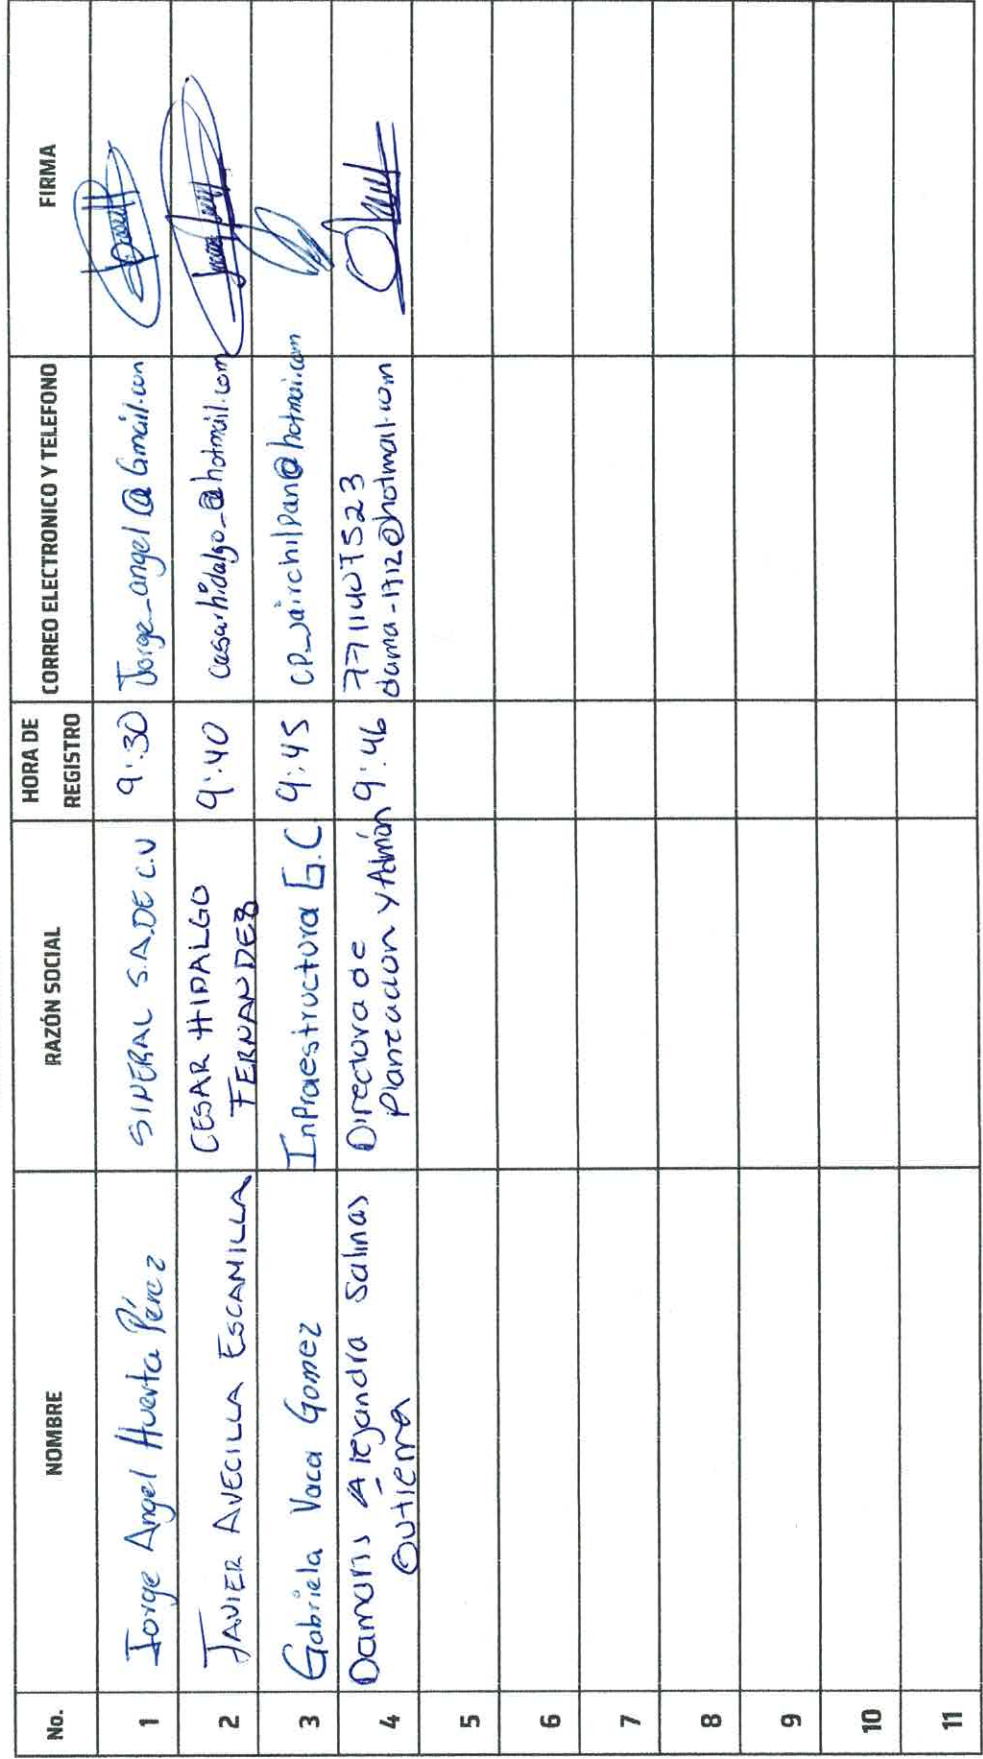 No.
NOMBRE
RAZÓN SOCIAL
HORA DE
REGISTRO
CORREO ELECTRONICO Y TELEFONO
FIRMA
1
Jorge Angel Huerta Pérez
SINERAL S.A.DE C.V
9:30
Jorge_angel@Gmail.com
2
JAVIER AVECILLA ESCAMILLA
CESAR HIDALGO
FERNANDEZ
9:40
cesarhidalgo_@hotmail.com
3
Gabriela Vaca Gomez
Infraestructura G.C
9:45
4
Damaris Alejandra Salinas
Directora de
Planeacion y Admón
9:46
7711407523
dama-1712@hotmail.com
5
6
7
8
9
10
11